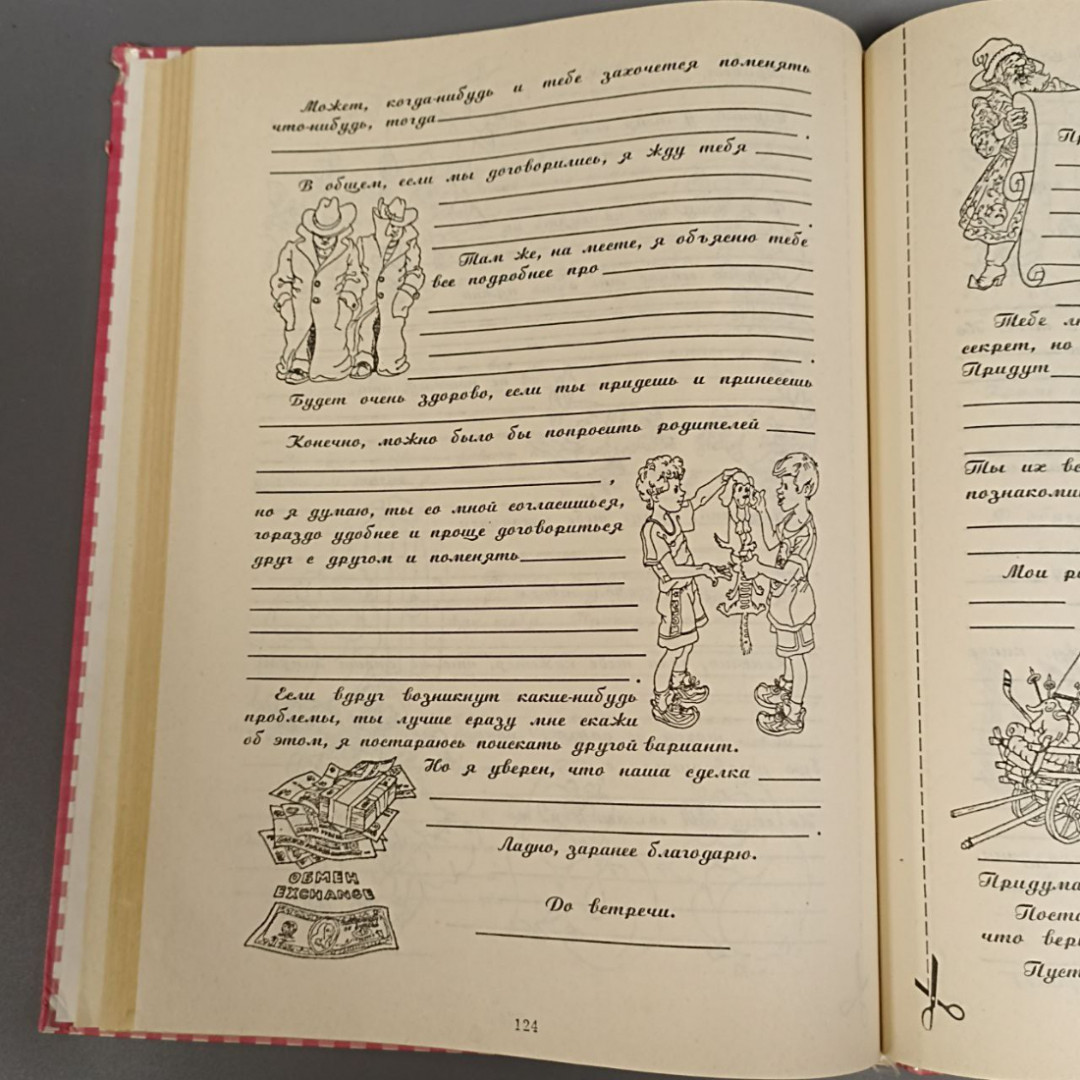 Может, когда-нибудь и тебе захочется поменять
что-нибудь, тогда
В общем, если мы договорились, я жду тебя
Там же, на месте, я объясню тебе
все подробнее про
Будет очень здорово, если ты придешь и принесешь
Конечно, можно было бы попросить родителей
,
но я думаю, ты со мной согласишься,
гораздо удобнее и проще договориться
друг с другом и поменять
.
Если вдруг возникнут какие-нибудь
проблемы, ты лучше сразу мне скажи
об этом, я постараюсь поискать другой вариант.
Но я уверен, что наша сделка
.
Ладно, заранее благодарю.
ОБМЕН
EXCHANGE
До встречи.
124
Тебе
секрет, но
Придут
Ты их
Мои
Пуст